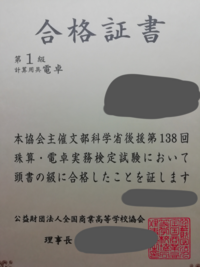 合格証書
第1級
計算用具電卓
本協会主催文部科学省後援第138回
珠算・電卓実務検定試験において
頭書の級に合格したことを証します
公益財団法人全国商業高等学校協会
理事長